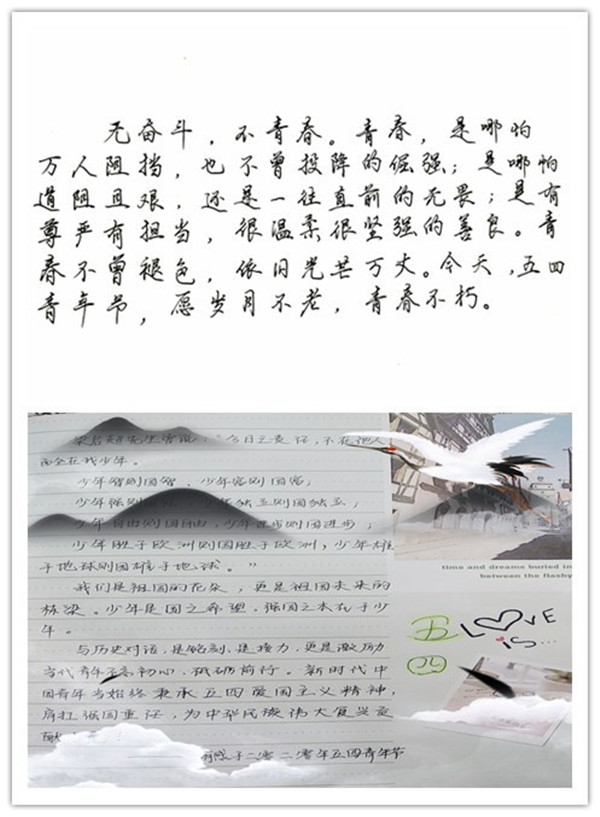 无奋斗，不青春。青春，是哪怕
万人阻挡，也不曾投降的倔强；是哪怕
道阻且艰，还是一往直前的无畏；是有
尊严有担当，很温柔很坚强的善良。青
春不曾褪色，依旧光芒万丈。今天，五四
青年节，愿岁月不老，青春不朽。
梁启超先生曾说："今日之责任，不在他人
而全在我少年。
少年智则国智，少年富则国富；
少年强则 独立则国独立；
少年自由则国自由，少年进步则国进步；
少年胜于欧洲则国胜于欧洲，少年雄
于地球则国雄于地球。"
我们是祖国的花朵，更是祖国未来的
栋梁。少年是国之希望，强国之本在于少
年。
与历史对话，是铭刻、是接力，更是激励
当代青年不忘初心，砥砺前行。新时代中
国青年当始终秉承五四爱国主义精神，
肩扛强国重任，为中华民族伟大复兴贡
献
有感于二零二零年五四青年节
time and dreams buried in
between the flashy
五四
LOVE
is...